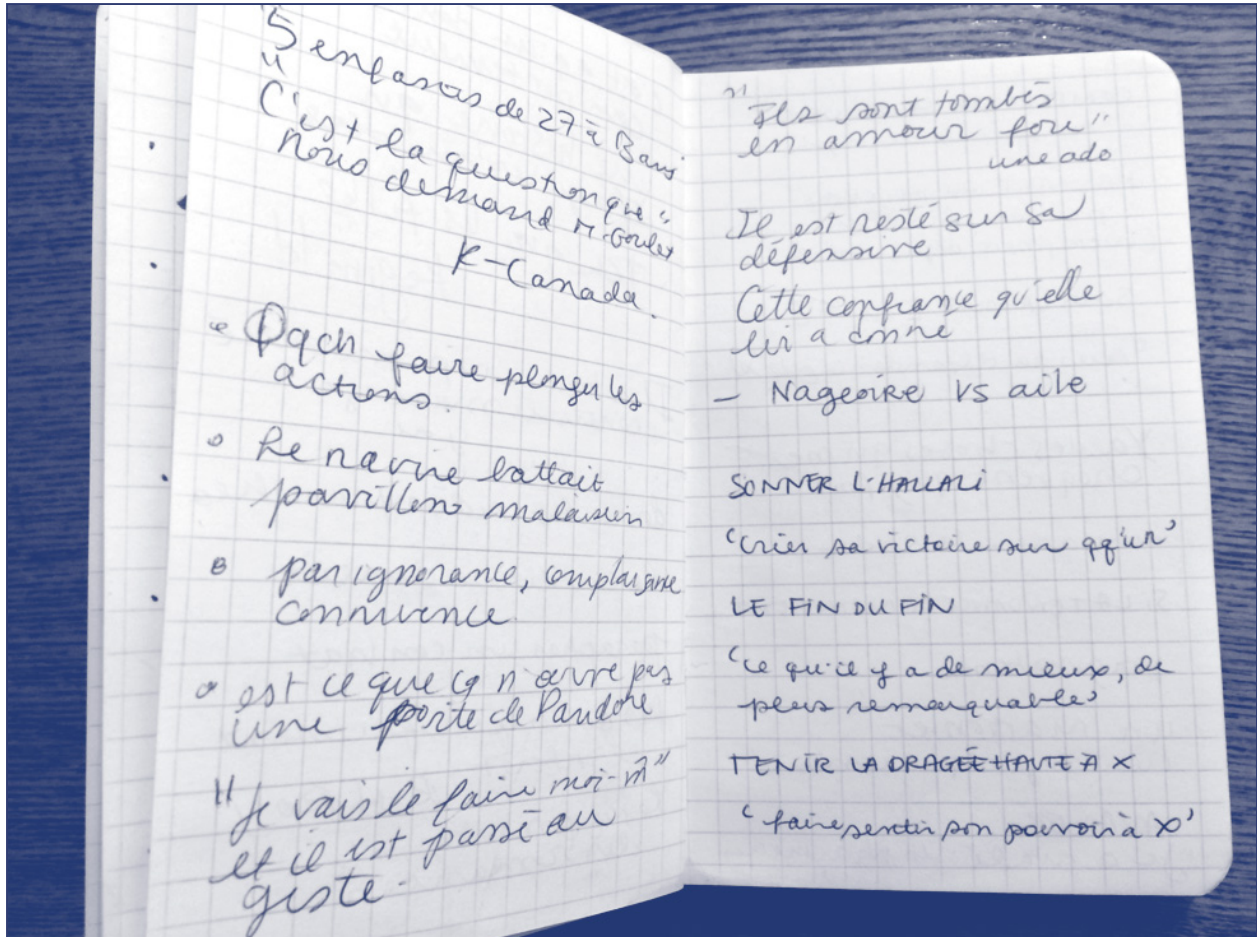 "5 enfants de 27 à Bans
"C'est la question que"
nous demand M. Goulet
K-Canada.
Qqch faire plonger les
actions.
Le navire battait
pavillon malaisien
par ignorance, complaisance
connivence
est ce que ça n'ouvre pas
une porte de Pandore
"Je vais le faire moi-m̂"
et il est passé au
geste.
"Ils sont tombés
en amour fou"
une ado
Il est resté sur sa
défensive
Cette confiance qu'elle
lui a donné
- Nageoire vs aile
SONNER L'HALLALI
'crier sa victoire sur qq'un'
LE FIN DU FIN
'ce qu'il y a de mieux, de
plus remarquable'
TENIR LA DRAGÉE HAUTE À X
'faire sentir son pouvoir à X'